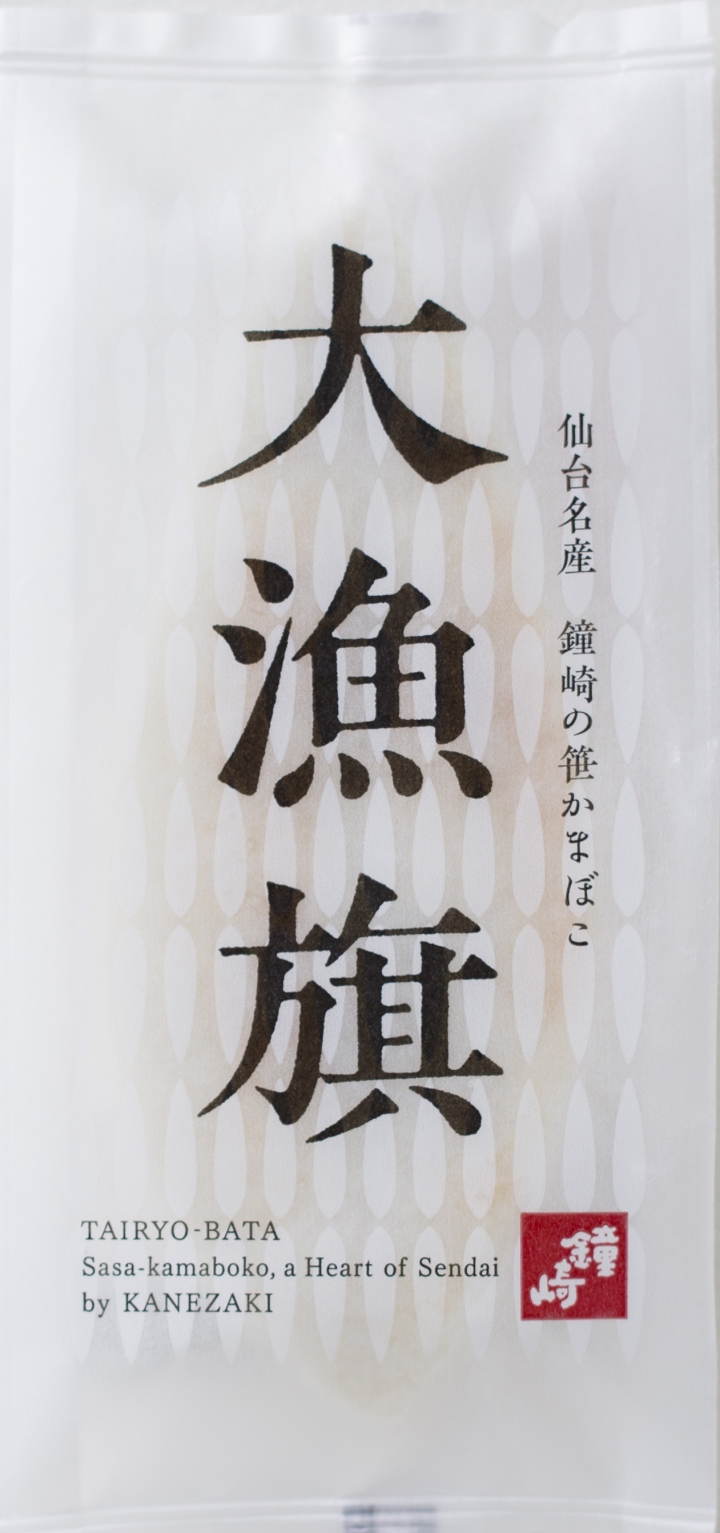 大漁旗
仙台名産 鐘崎の笹かまぼこ
TAIRYO-BATA
Sasa-kamaboko, a Heart of Sendai
by KANEZAKI
鐘崎